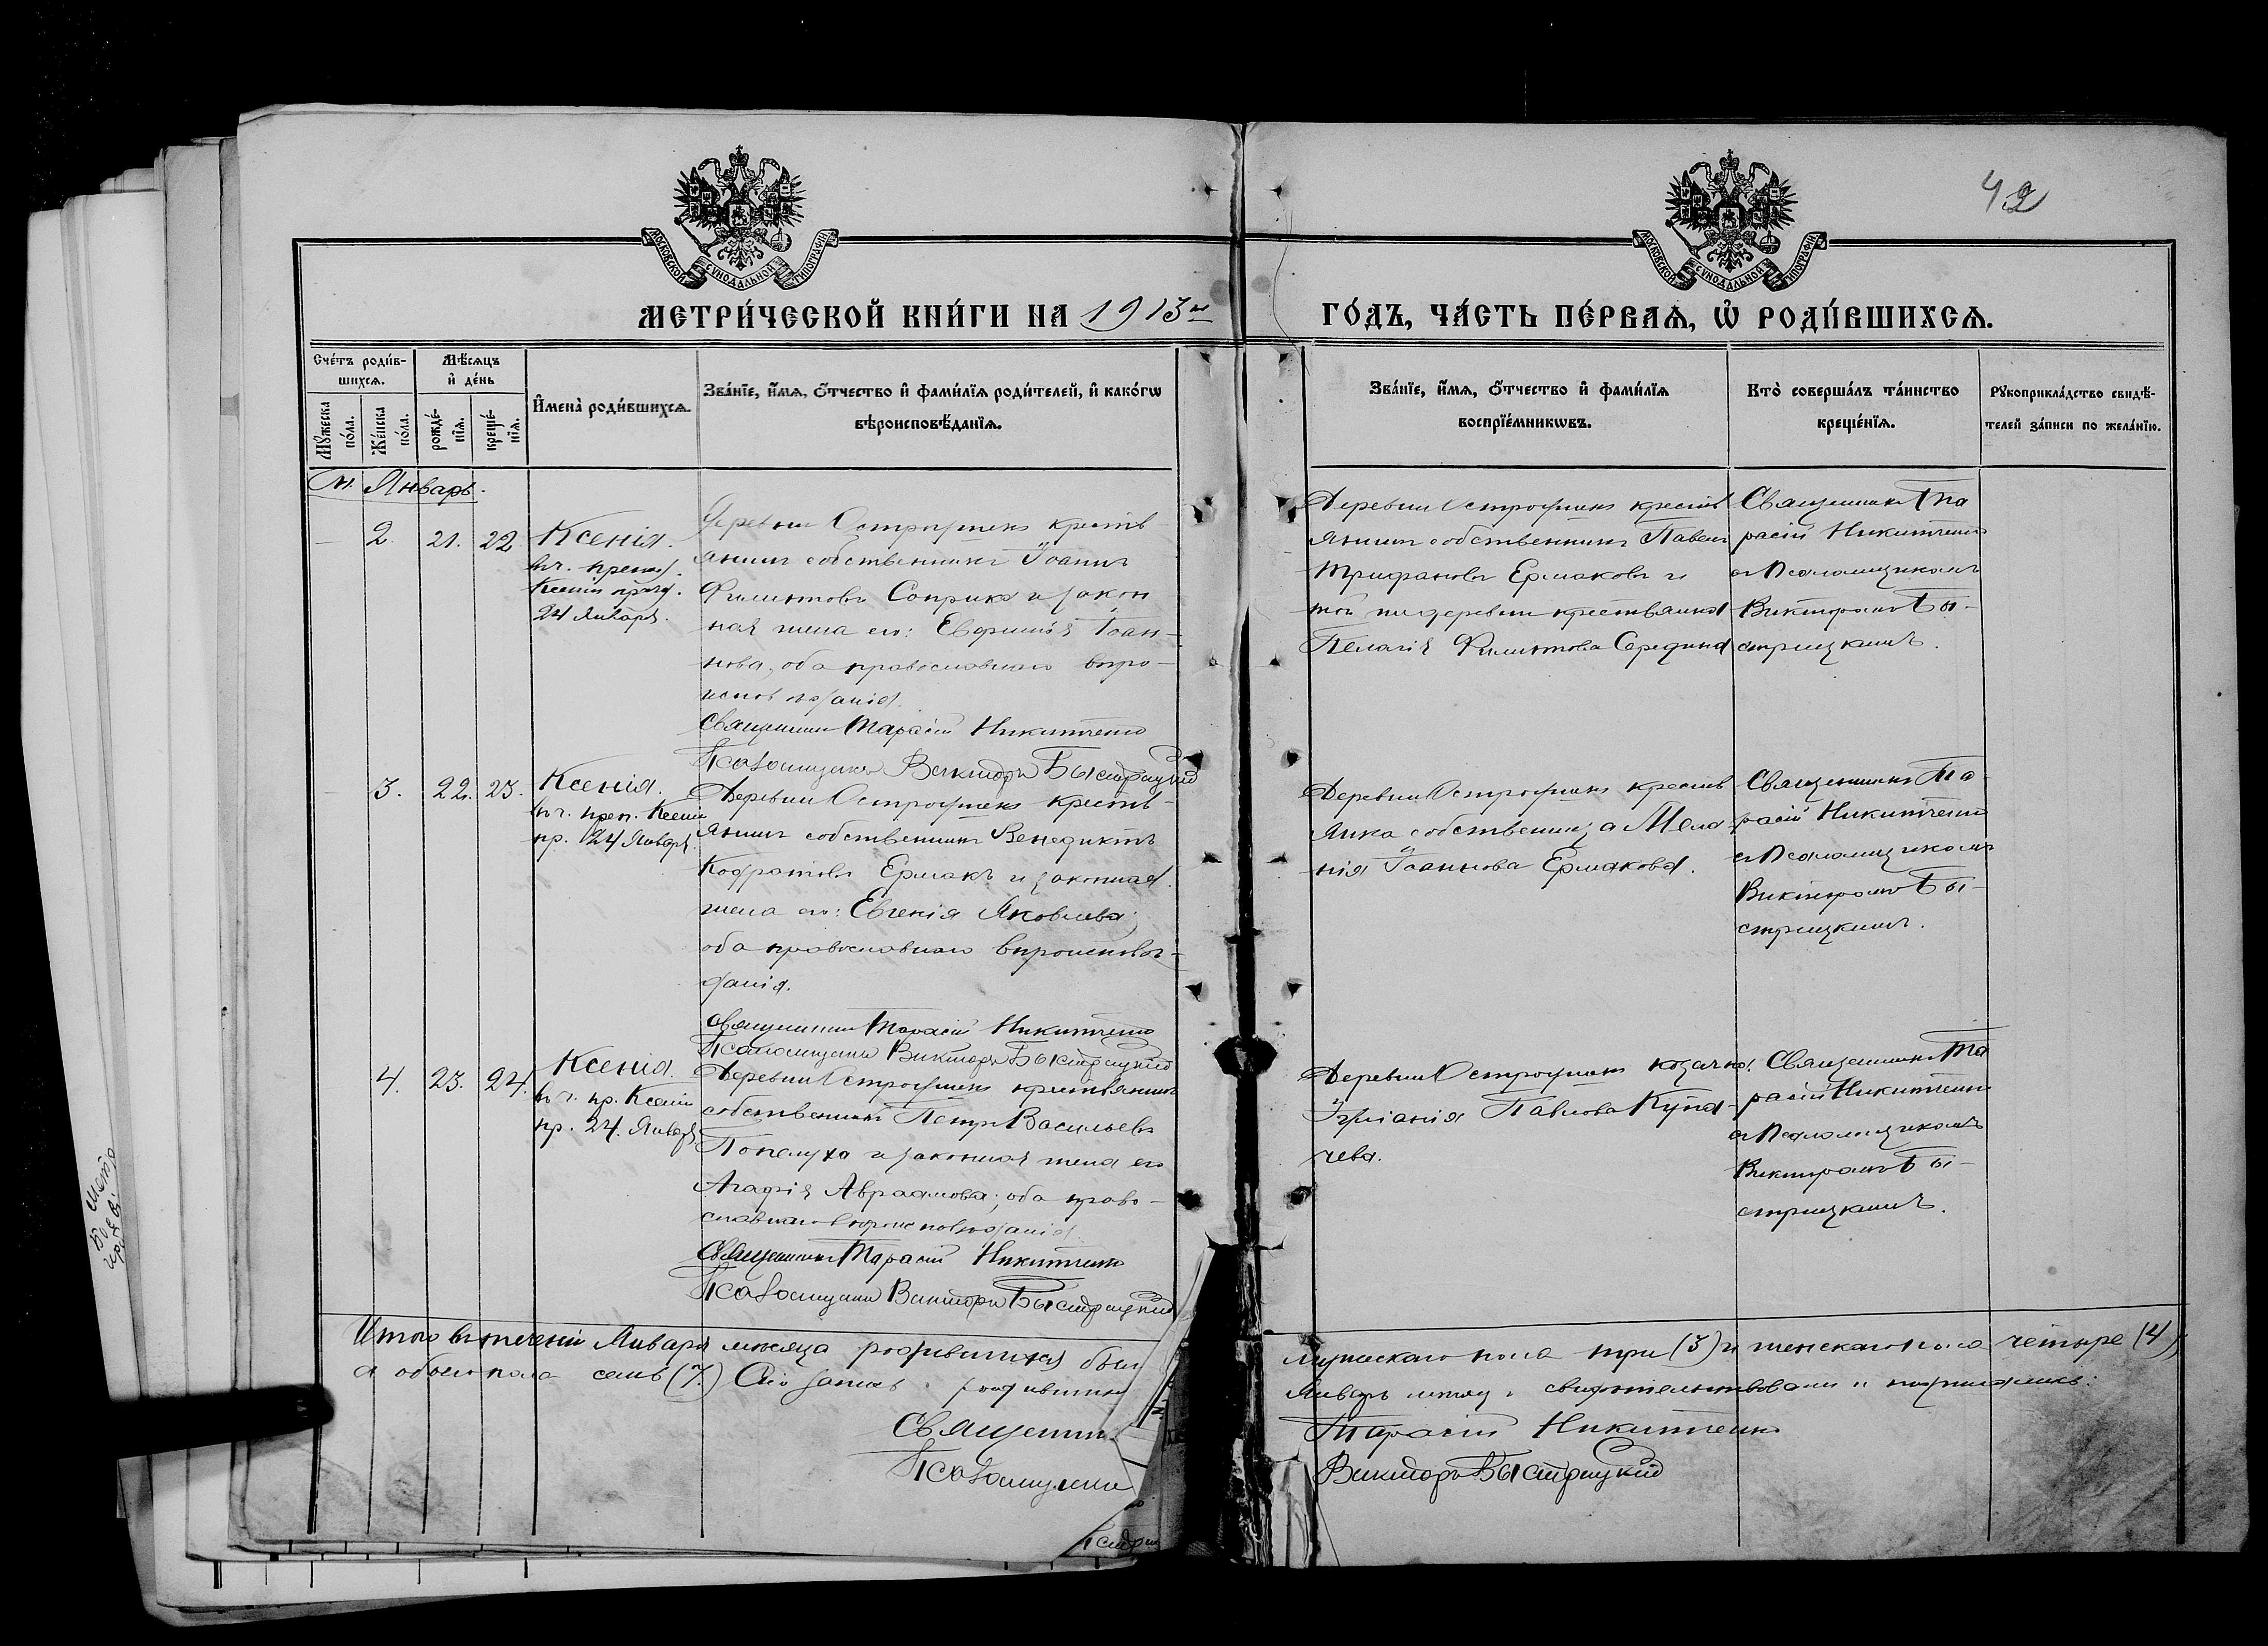 42
МОСКОВСКОЙ СѴНОДАЛЬНОЙ ТИПОГРАФІИ
МОСКОВСКОЙ СѴНОДАЛЬНОЙ ТИПОГРАФІИ
МЕТРИ́ЧЕСКОЙ КНИ́ГИ НА 1913й
ГО́ДЪ, ЧА́СТЬ ПЕ́РВАѦ, Ѡ҆ РОДИ́ВШИХСѦ.
Сче́тъ роди́в-
шихсѧ.
Мꙋ́жеска по́ла.
Же́нска по́ла.
Мѣ́сѧцъ
и҆ де́нь
рожде́-нїѧ.
креще́-нїѧ.
И҆мена̀ роди́вшихсѧ.
Зва́нїе, и҆́мѧ, ѻ҆́тчество и҆ фами́лїѧ роди́телей, и҆ како́гѡ
вѣроисповѣ́данїѧ.
Зва́нїе, и҆́мѧ, ѻ҆́тчество и҆ фами́лїѧ
воспрїе́мникѡвъ.
Кто̀ соверша́лъ та́инство
креще́нїѧ.
Рꙋкоприкла́дство свидѣ́-
телей за́писи по жела́нїю.
М. Январь.
2. 21. 22. Ксенія.
Ксеніи празд.
24 Января.
Деревни крестъ-
янинъ собственникъ Іоаннъ
Филиптовъ и закон
ная жена его: Евфимія Іоан-
нова, оба православнаго вѣро-
исповѣданія.
Священникъ Тарасій Никитченко
Псаломщикъ Викторъ Быстрицкій
Деревни крестъ
янинъ собственникъ Павелъ
Трифановъ Ермаковъ и
той же деревни крестьянка
Пелагія Середина
Священникъ Та
расій Никитченко
съ Псаломщикомъ
Викторомъ Бы-
стрицкимъ.
3. 22. 23. Ксенія.
въ ч. преп. Ксеніи
пр. 24 Января.
Деревни кресть-
янинъ собственникъ Венедиктъ
Кодратовъ Ермакъ и законная
жена его: Евгенія Яковлева;
оба православнаго вѣроисповѣ-
данія.
Священникъ Тарасій Никитченко
Псаломщикъ Викторъ Быстрицкій
Деревни крестъ
янка собственница Мела
нія Іоаннова Ермакова.
Священникъ Та-
расій Никитченко
съ Псаломщикомъ
Викторомъ Бы-
стрицкимъ.
4. 23. 24. Ксенія.
въ ч. пр. Ксеніи
пр. 24. Января
Деревни крестьянинъ
собственникъ Петръ Васильевъ
Попелуха и законная жена его
Агафія Авраамова; оба право-
славнаго вѣроисповѣданія.
Священникъ Тарасій Никитченко
Псаломщикъ Викторъ Быстрицкій
Деревни козачка
Павлова Купа-
чева.
Священникъ Та
расій Никитченко
съ Псаломщикомъ
Викторомъ Бы-
стрицкимъ.
Итого въ теченіи Января мѣсяца родившихся было мужескаго пола три (3) и женскаго пола четыре (4)
а обоего пола семь (7.) Сію запись
Январь мѣсяц свидѣтельствовали и
Священник Тарасій Никитченко
Псаломщик Викторъ Быстрицкій